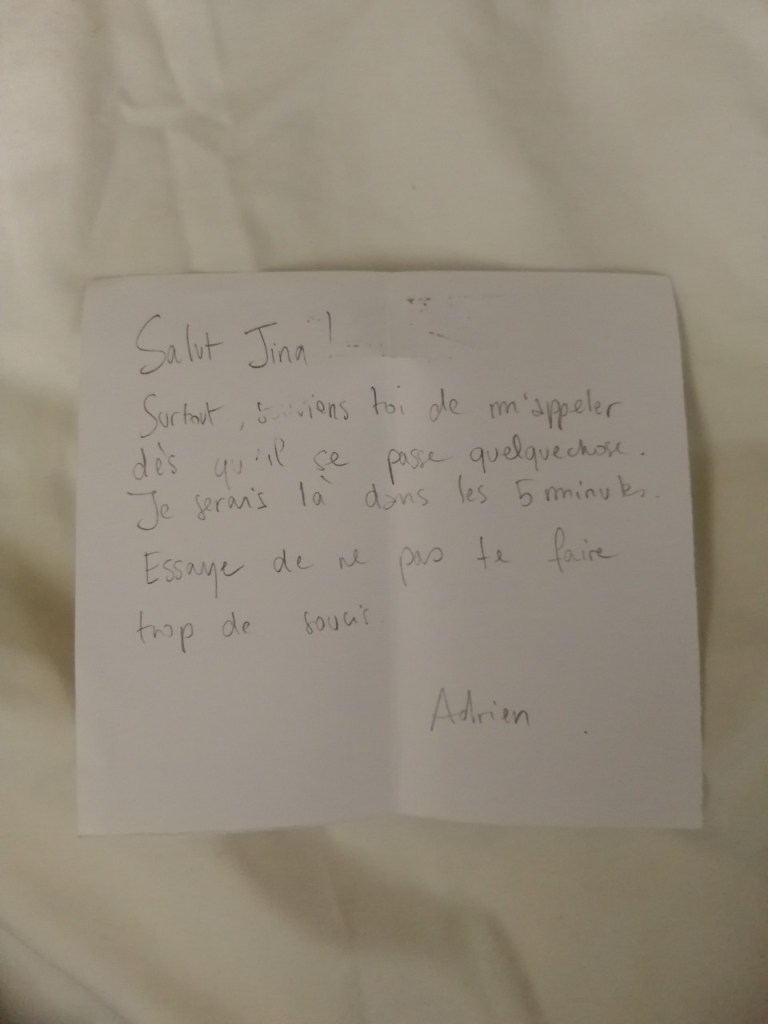 Salut Jina !
Surtout, souviens toi de m'appeler
dès qu'il se passe quelquechose.
Je serais là dans les 5 minutes.
Essaye de ne pas te faire
trop de soucis.
Adrien